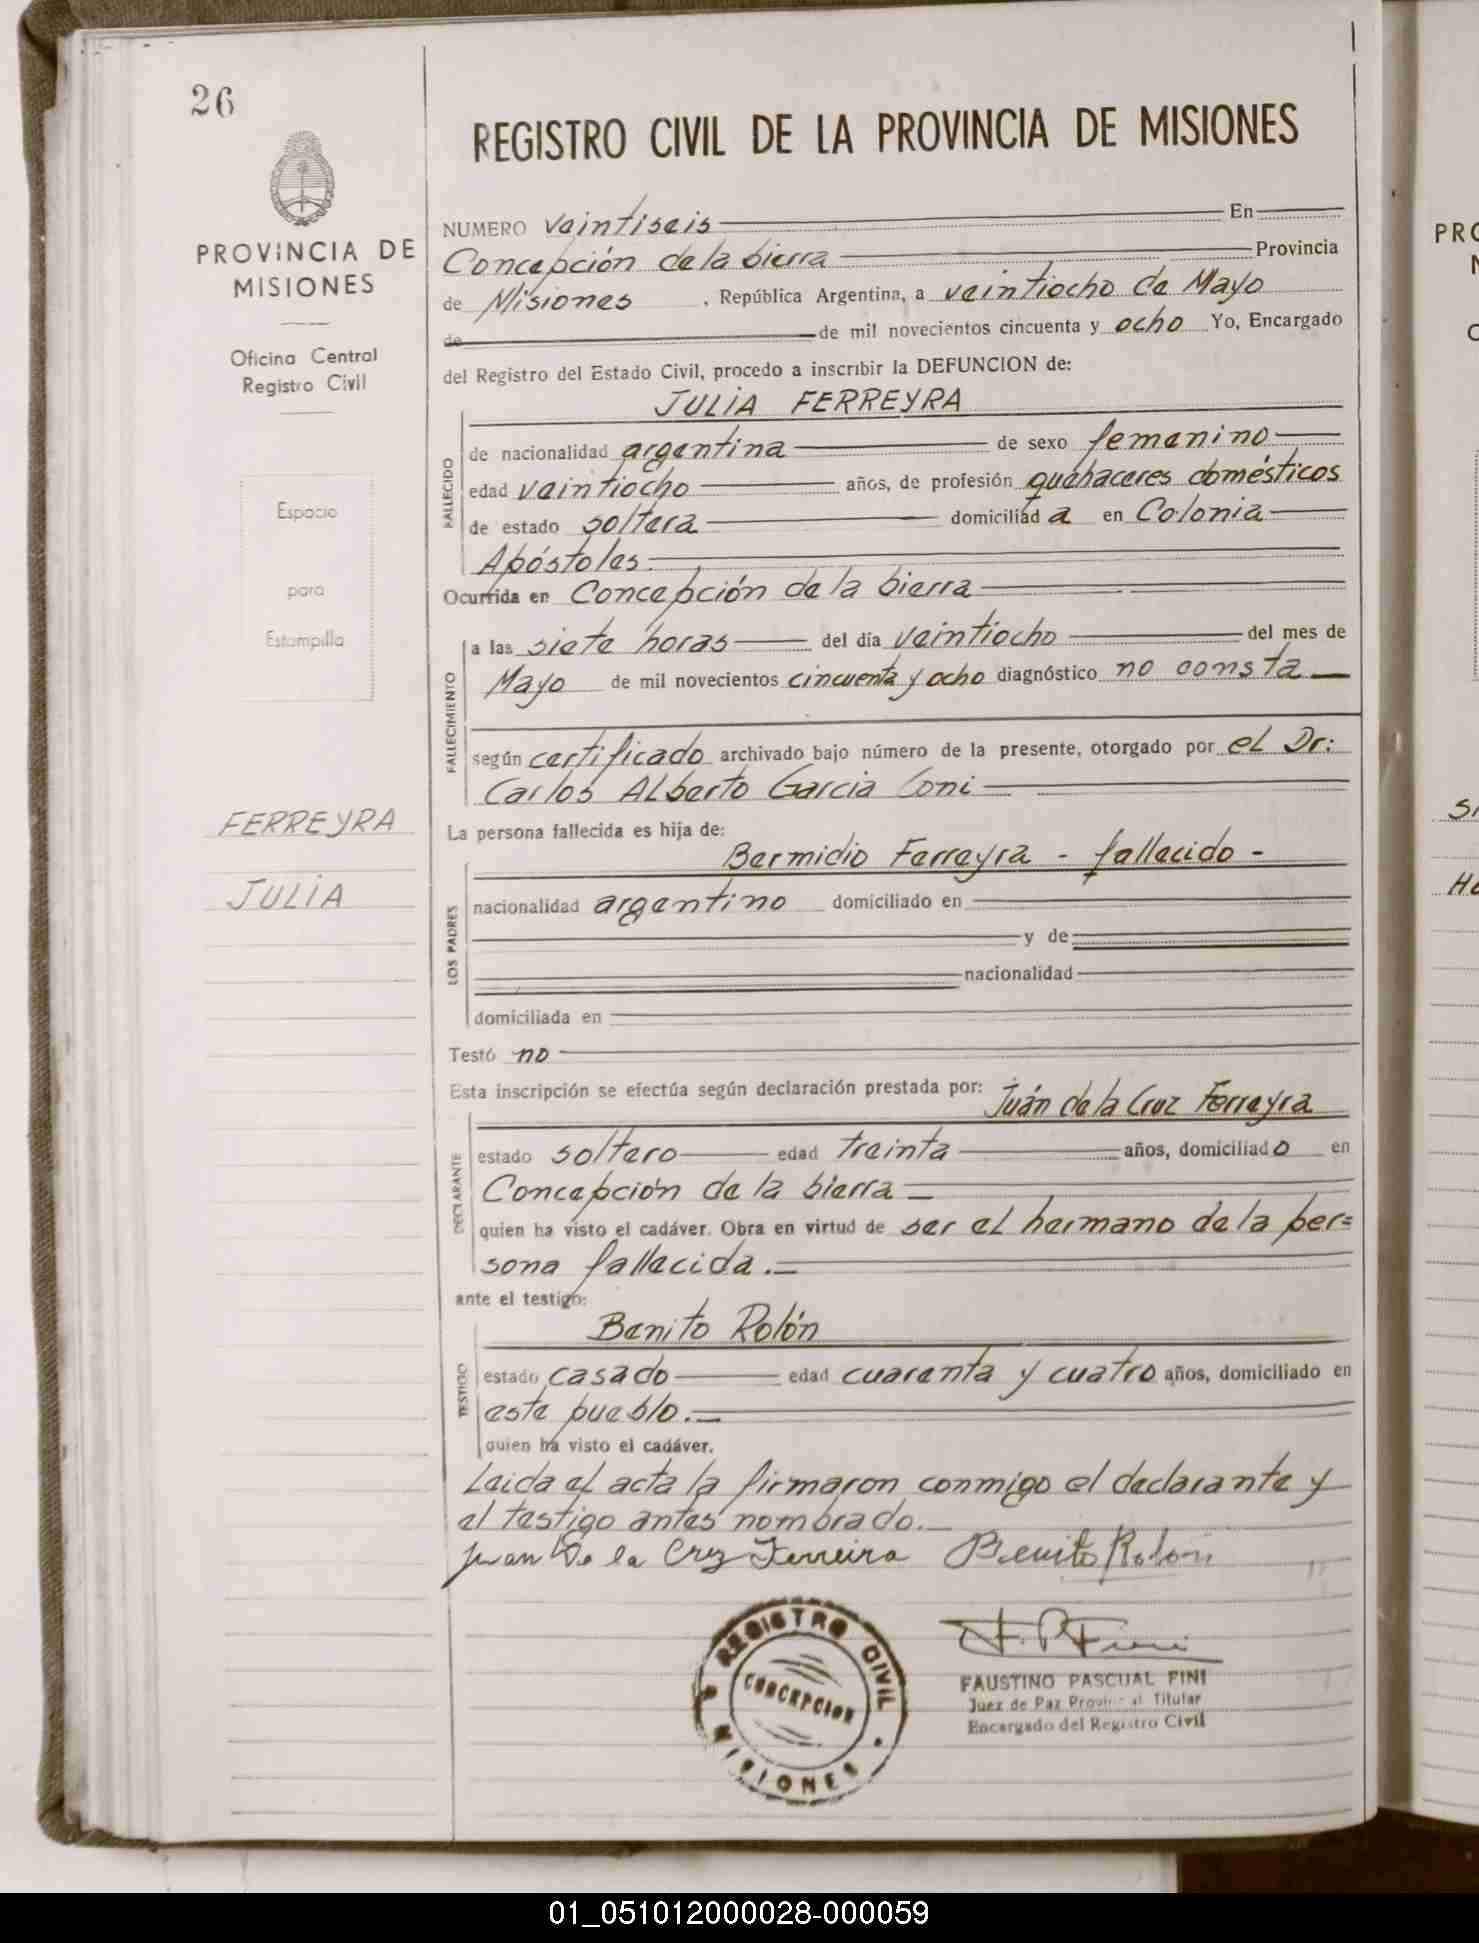 26
PROVINCIA DE
MISIONES
Oficina Central
Registro Civil
Espacio
para
Estampilla
FERREYRA
JULIA
REGISTRO CIVIL DE LA PROVINCIA DE MISIONES
NUMERO veintiseis En
Concepción de la Sierra Provincia
de Misiones , República Argentina, a veintiocho de Mayo
de de mil novecientos cincuenta y ocho Yo, Encargado
del Registro del Estado Civil, procedo a inscribir la DEFUNCION de:
JULIA FERREYRA
FALLECIDO
de nacionalidad argentina de sexo femenino
edad veintiocho años, de profesión quehaceres domésticos
de estado soltera domiciliada en Colonia
Apóstoles.
Ocurrida en Concepción de la Sierra
FALLECIMIENTO
a las siete horas del día veintiocho del mes de
Mayo de mil novecientos cincuenta y ocho diagnóstico no consta
según certificado archivado bajo número de la presente, otorgado por el Dr:
Carlos Alberto Garcia Coni
La persona fallecida es hija de:
LOS PADRES
Bermidio Ferreyra - fallecido -
nacionalidad argentino domiciliado en
y de
nacionalidad
domiciliada en
Testó no
Esta inscripción se efectúa según declaración prestada por: Juán de la Cruz Ferreyra
DECLARANTE
estado soltero edad treinta años, domiciliado en
Concepción de la Sierra
quien ha visto el cadáver. Obra en virtud de ser el hermano de la per=
sona fallecida.
ante el testigo:
TESTIGO
Benito Rolón
estado casado edad cuarenta y cuatro años, domiciliado en
este pueblo.
quien ha visto el cadáver.
Leida el acta la firmaron conmigo el declarante y
el testigo antes nombrado.
Juan De la Cruz Ferreira Benito Rolon
REGISTRO CIVIL
CONCEPCION
MISIONES
FAUSTINO PASCUAL FINI
Juez de Paz Provincial Titular
Encargado del Registro Civil
PRO
SI
01_051012000028-000059